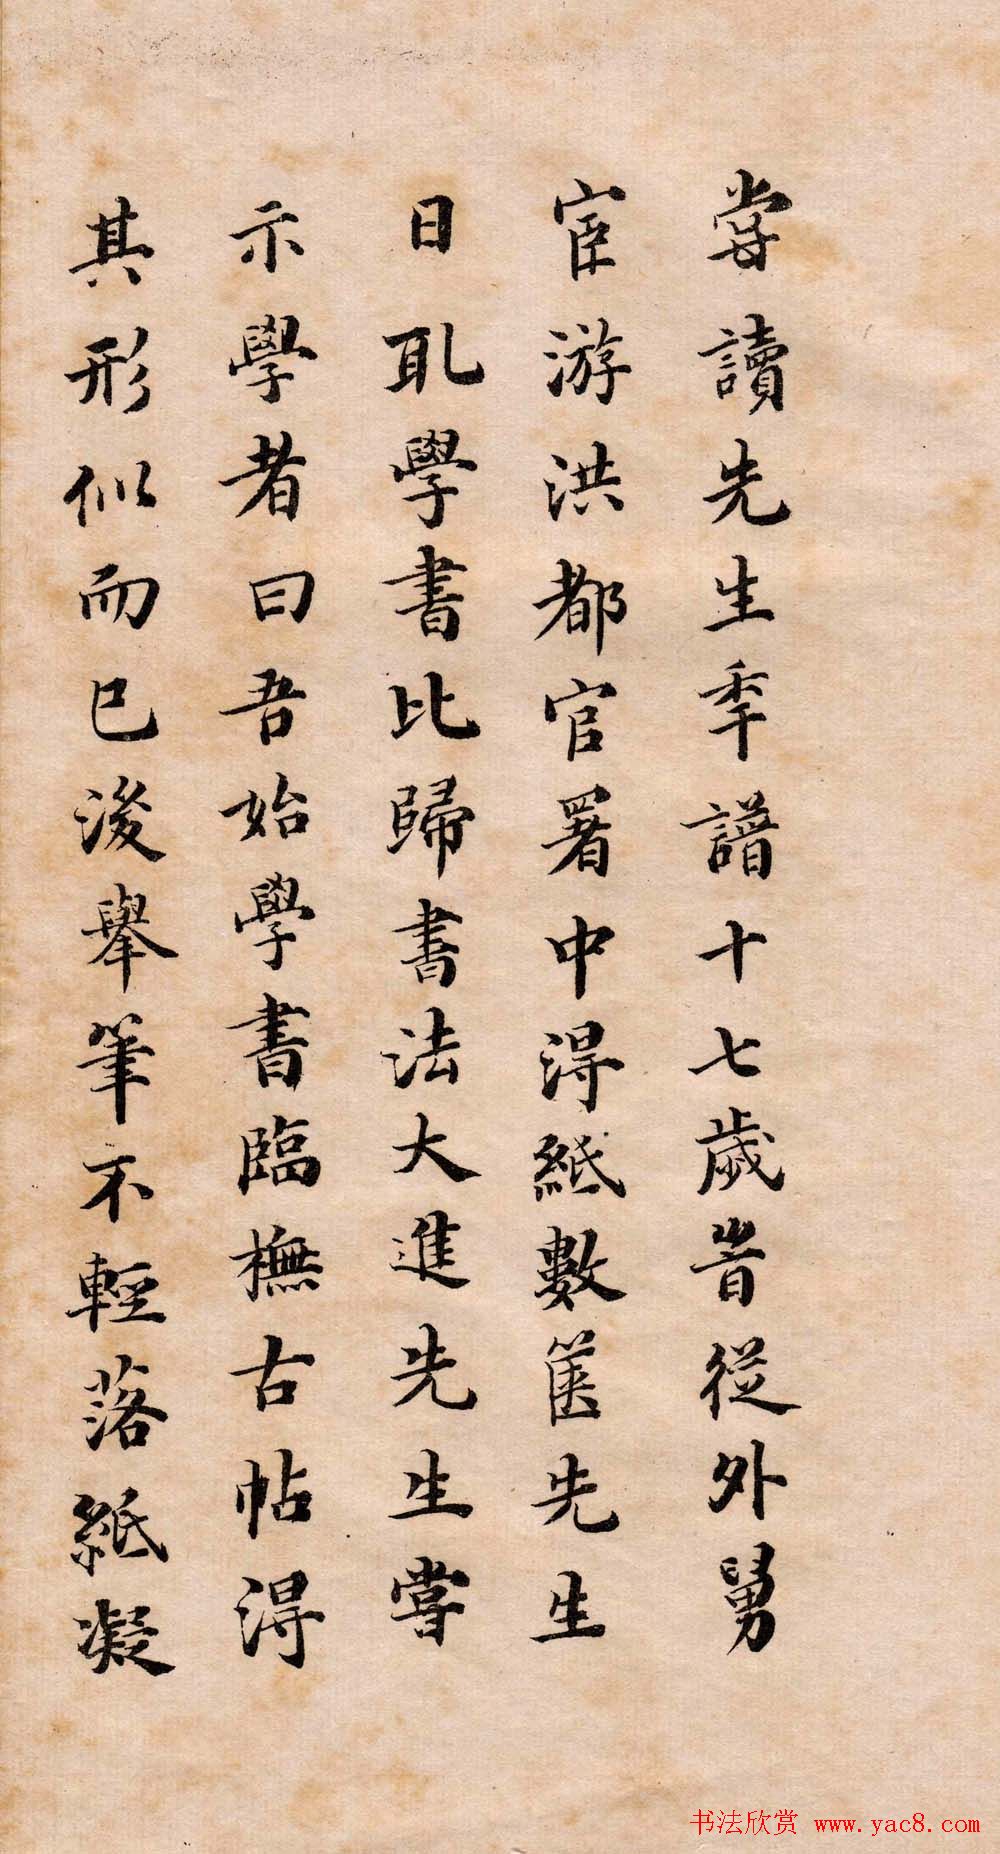 嘗讀先生季譜十七歲旹從外舅
宦游洪都官署中得紙數篋先生
日取學書比歸書法大進先生嘗
示學者曰吾始學書臨橅古帖得
其形似而已後舉筆不輕落紙凝
书法欣赏 www.yac8.com